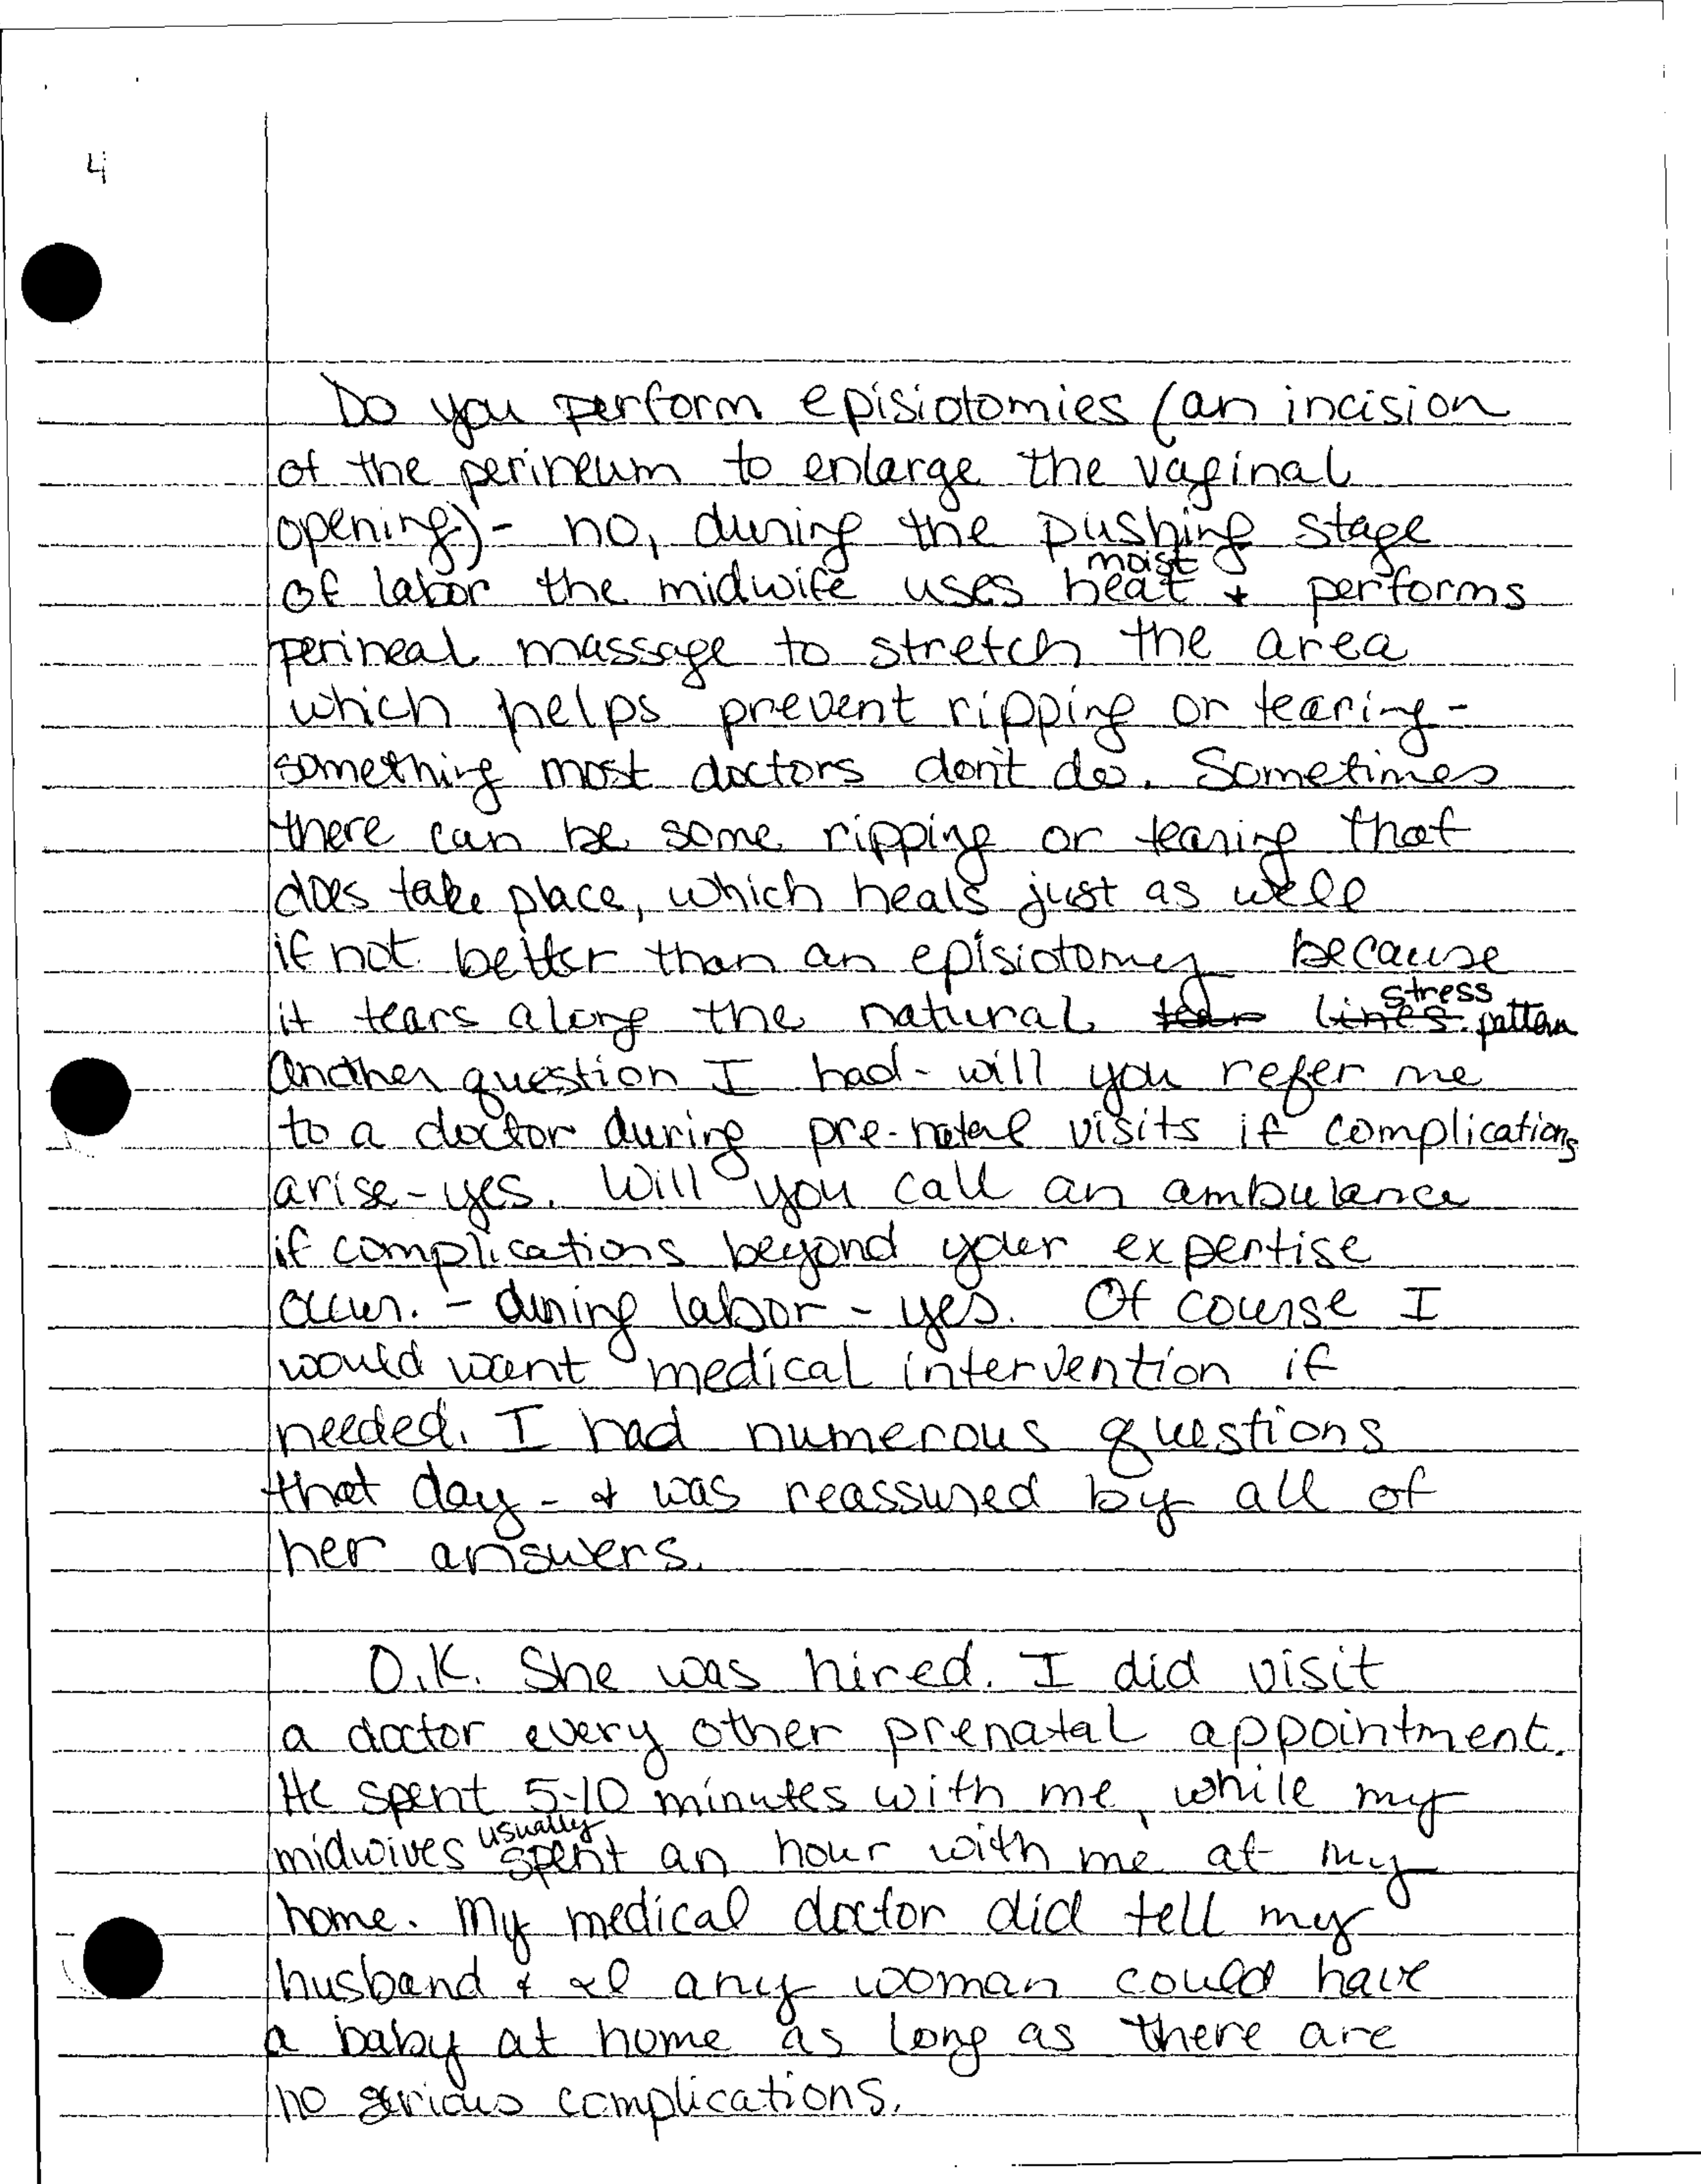 4
Do you perform episiotomies (an incision
of the perineum to enlarge the vaginal
opening)- no, during the pushing stage
of labor the midwife uses moist heat & performs
perineal massage to stretch the area
which helps prevent ripping or tearing-
something most doctors don't do. Sometimes
there can be some ripping or tearing that
does take place, which heals just as well
if not better than an episiotomy because
it tears along the natural tear lines stress pattern
Another question I had- will you refer me
to a doctor during pre-natal visits if complications
arise-yes. Will you call an ambulance
if complications beyond your expertise
occur. - during labor - yes. Of course I
would want medical intervention if
needed. I had numerous questions
that day - & was reassured by all of
her answers.
O.K. She was hired. I did visit
a doctor every other prenatal appointment.
He spent 5-10 minutes with me, while my
midwives usually spent an hour with me at my
home. My medical doctor did tell my
husband & I any woman could have
a baby at home as long as there are
no serious complications.